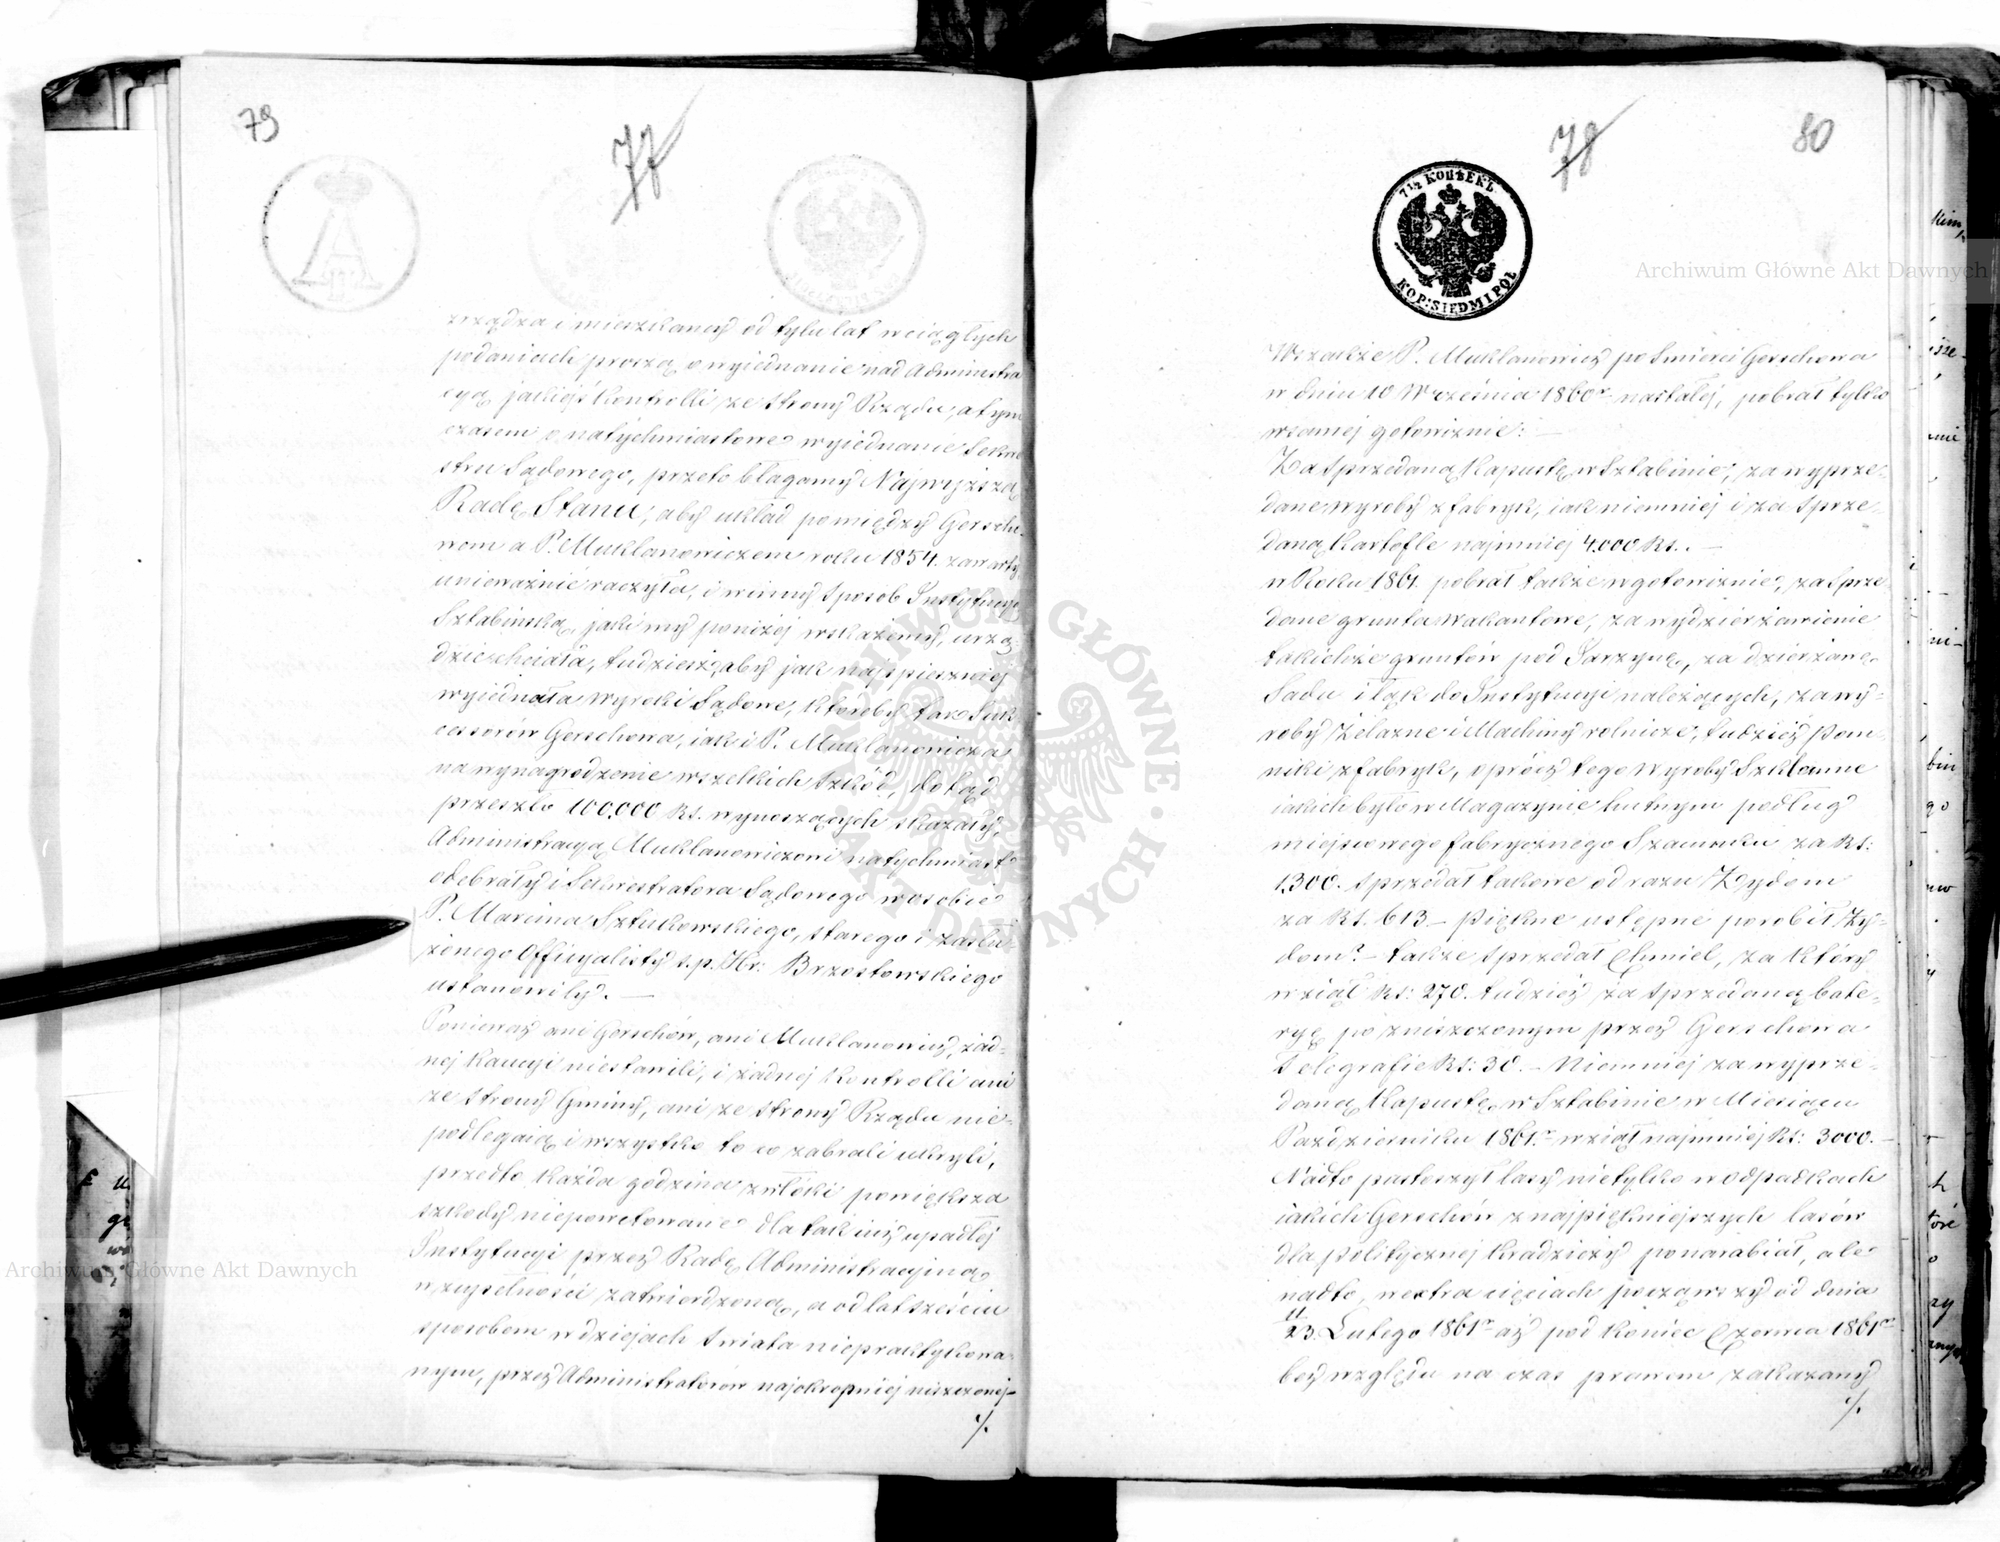 79
77
zrządza i mieszkańcy od tylu lat w ciągłych
podaniach proszą o wyiednanie nad Administra
cyą jakiejś Kontrolli ze strony Rządu, a tym
czasem o natychmiastowe wyiednanie Sekwe
stru Sądowego, przeto błagamy Najwyższą
Radę Stanu, aby układ pomiędzy Gerscho-
wem a P. Muklanowiczem roku 1854. zawarty
unieważnić raczyła, i w inny sposób Instytucyę
Sztabińską, jaki my poniżej wskażemy, urzą
dzić chciała, tudzież, aby jak najspieszniej
wyiednała wyroki Sądowe, któreby tak Suk
cessorów Gerschowa, iak i P. Muklanowicza
na wynagrodzenie wszelkich szkód, dotąd
przeszło 100,000 Rs. wynoszących skazały,
Administracyą Muklanowiczowi natychmiast
odebrały i Sekwestratora Sądowego w osobie
P. Marcina Sztukowskiego, starego i zasłu-
żonego Officyalisty ś.p. Hr: Brzostowskiego
ustanowiły. —
Ponieważ ani Gerschów, ani Muklanowicz, żad-
nej Kaucyi niestawili, i żadnej Kontrolli ani
ze strony Gminy, ani ze strony Rządu nie-
podlegaią i wszystko to co zabrali ukryli,
przeto każda godzina zwłóki powiększa
szkody niepowetowane dla tak iuż upadłej
Instytucyi przez Radę Administracyiną
w zupełności zatwierdzoną, a od lat sześciu
sposobem w dziejach świata niepraktykowa-
nym, przez Administratorów najokropniej niszczonej.
./.
78
80
7 1/2 КОПѢЕКЪ
KOP: SIEDM I PÓŁ
Wszakże P. Muklanowicz po śmierci Gerschowa
w dniu 10 Września 1860 r. nastałej, pobrał tylko
w samej gotowiznie: —
Za sprzedaną Kapustę w Sztabinie, za wyprze-
dane wyroby z fabryk, iak niemniej i za sprze-
daną Kartofle najmniej 4.000 Rs. —
w Roku 1861 pobrał także w gotowiznie, za sprze-
dane grunta wakantowe, za wydzierżawienie
takichże gruntów pod Jarzynę, za dzierżawę
Sadu i łąk do Instytucyi należących, za wy-
roby żelazne i Machiny rolnicze, tudzież pom
niki z fabryk, oprócz tego wyroby Szklanne
iakich było w Magazynie hutnym podług
miejscowego fabrycznego Szacunku za Rs:
1,300. sprzedał takowe od razu Żydom
za Rs. 613 — piękne ustępne porobił Ży-
dom? — także sprzedał Chmiel, za który
wziął Rs: 270. tudzież za sprzedaną bate-
ryę po zniszczonym przez Gerschowa
Telegrafie Rs: 30. — Niemniej za wyprze-
daną Kapustę w Sztabinie w Miesiącu
Październiku 1861 r. wziął najmniej Rs: 3000. —
Nadto pustoszył lasy nietylko w odpadkach
iakich Gerschów z najpiękniejszych lasów
dla politycznej kradzieży ponarabiał, ale
nadto, w extra cięciach począwszy od dnia
11/23 Lutego 1861 r. aż pod koniec Czerwca 1861 r.
bez względu na czas prawem zakazany
./.
Archiwum Główne Akt Dawnych
Archiwum Główne Akt Dawnych
ARCHIWUM GŁÓWNE · AKT DAWNYCH ·